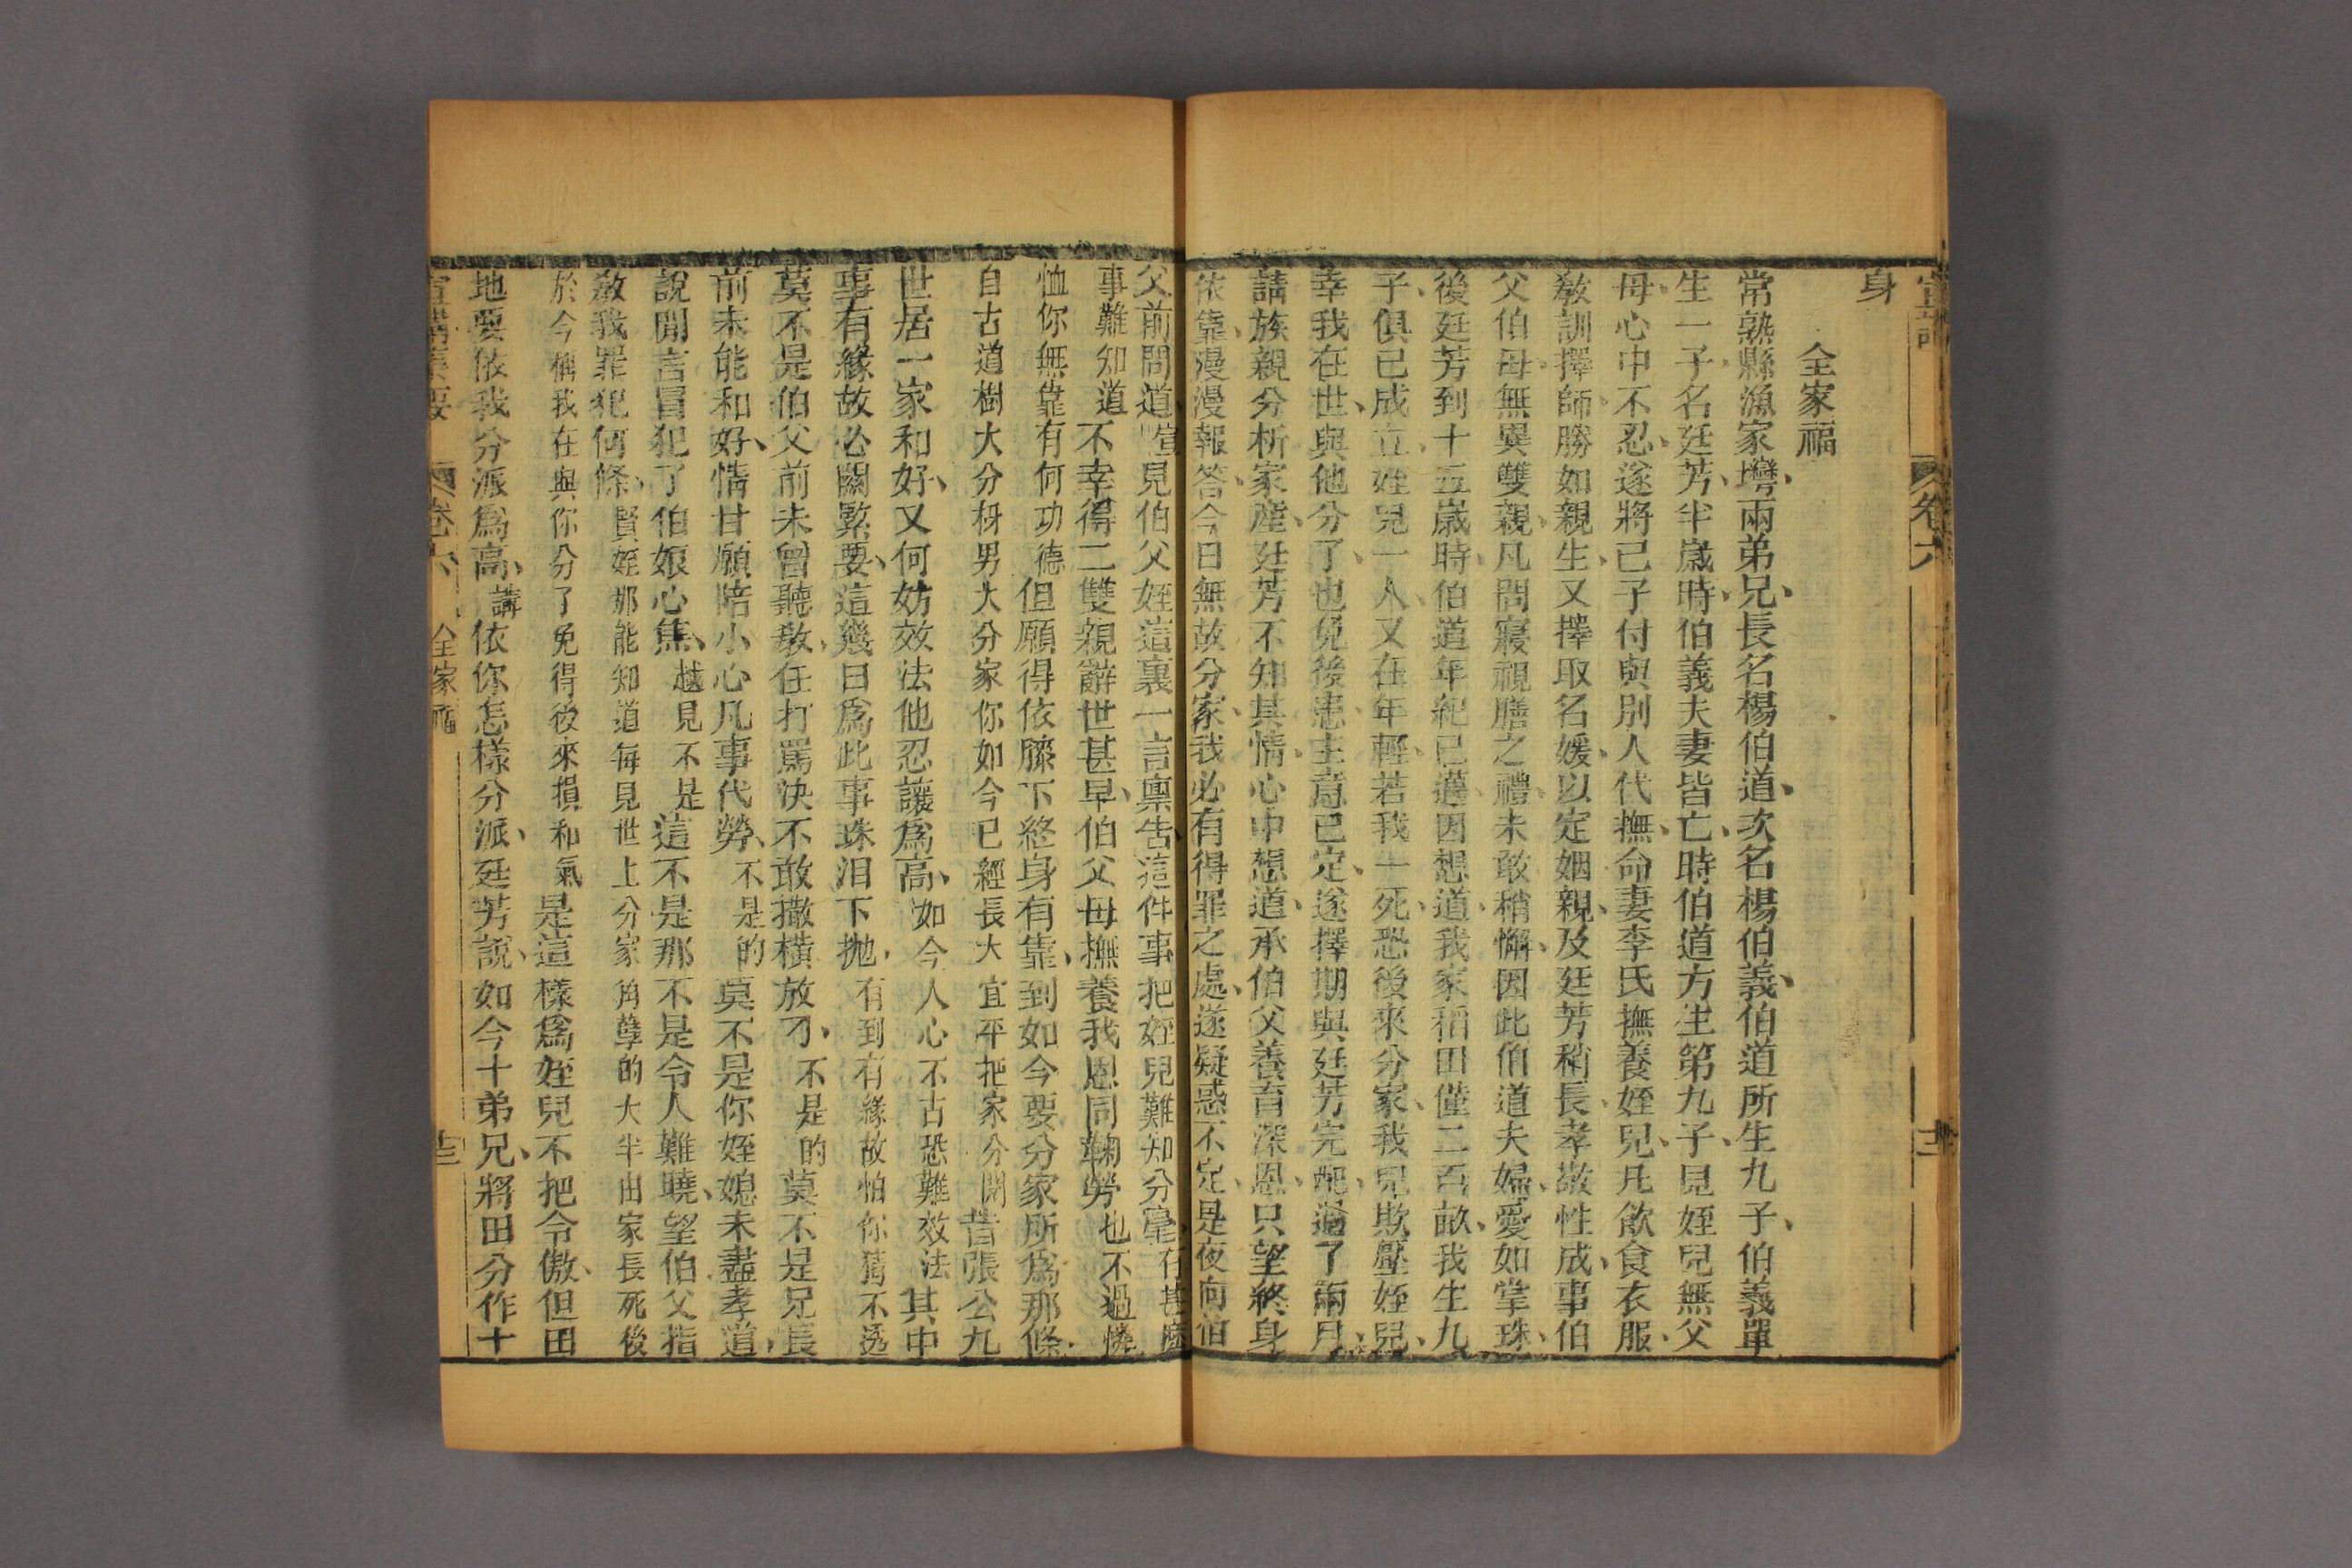 身
全家福
常熟縣漁家壪兩弟兄長名楊伯道次名楊伯義伯道所生九子伯義單
生一子名廷芳半歲時伯義夫妻皆亡時伯道方生第九子見姪兒無父
母心中不忍遂將己子付與別人代撫命妻李氏撫養姪兒凡飲食衣服
敎訓擇師勝如親生又擇取名媛以定姻親及廷芳稍長孝敬性成事伯
父伯母無異雙親凡問寢視膳之禮未敢稍懈因此伯道夫婦愛如掌珠
後廷芳到十五歲時伯道年紀已邁因想道我家稻田僅二百畝我生九
子俱已成立姪兒一人又在年輕若我一死恐後來分家我兒欺壓姪兒
幸我在世與他分了也免後患主意已定遂擇期與廷芳完配過了兩月
請族親分析家産廷芳不知其情心中想道承伯父養育深恩只望終身
依靠漫漫報答今日無故分家我必有得罪之處遂疑惑不定是夜向伯
父前問道宣見伯父姪這裏一言禀吿這件事把姪兒難知分毫有甚麽
事難知道不幸得二雙親辭世甚早伯父母撫養我恩同鞠勞也不過憐
恤你無靠有何功德但願得依膝下終身有靠到如今要分家所爲那條
自古道樹大分枒男大分家你如今已經長大宜平把家分開昔張公九
世居一家和好又何妨效法他忍讓爲高如今人心不古恐難效法其中
事有緣故必關緊要這幾日爲此事珠泪下拋有到有緣故怕你猜不透
莫不是伯父前未曾聽敎任打罵決不敢撒橫放刁不是的莫不是兄長
前未能和好情甘願陪小心凡事代勞不是的莫不是你姪媳未盡孝道
說閒言冒犯了伯娘心焦越見不是這不是那不是令人難曉望伯父指
敎我罪犯何條賢姪那能知道每見世上分家角孽的大半由家長死後
於今稱我在與你分了免得後來損和氣是這樣爲姪兒不把令傲但田
地要依我分派爲高講依你怎樣分派廷芳說如今十弟兄將田分作十
卷六
全家福